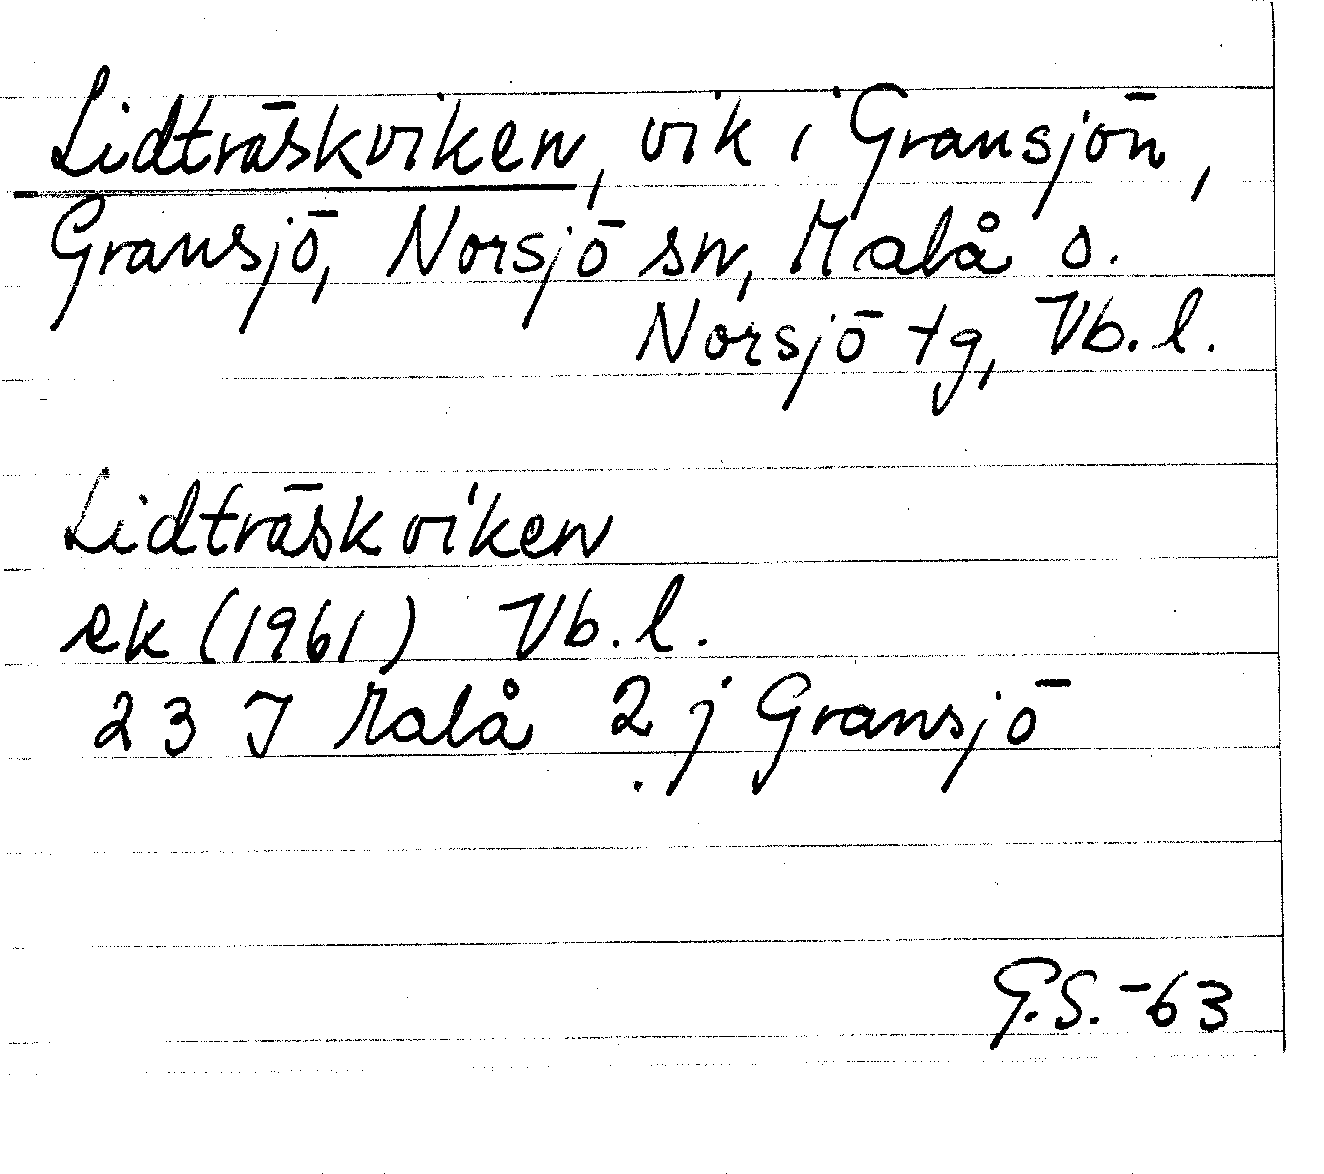 Lidträskviken, vik i Gransjön,
Gransjö, Norsjö sn, Malå o.
Norsjö tg, Vb.l.
Lidträskviken
ek (1961) Vb.l.
23 J Malå 2 j Gransjö
G.S.-63